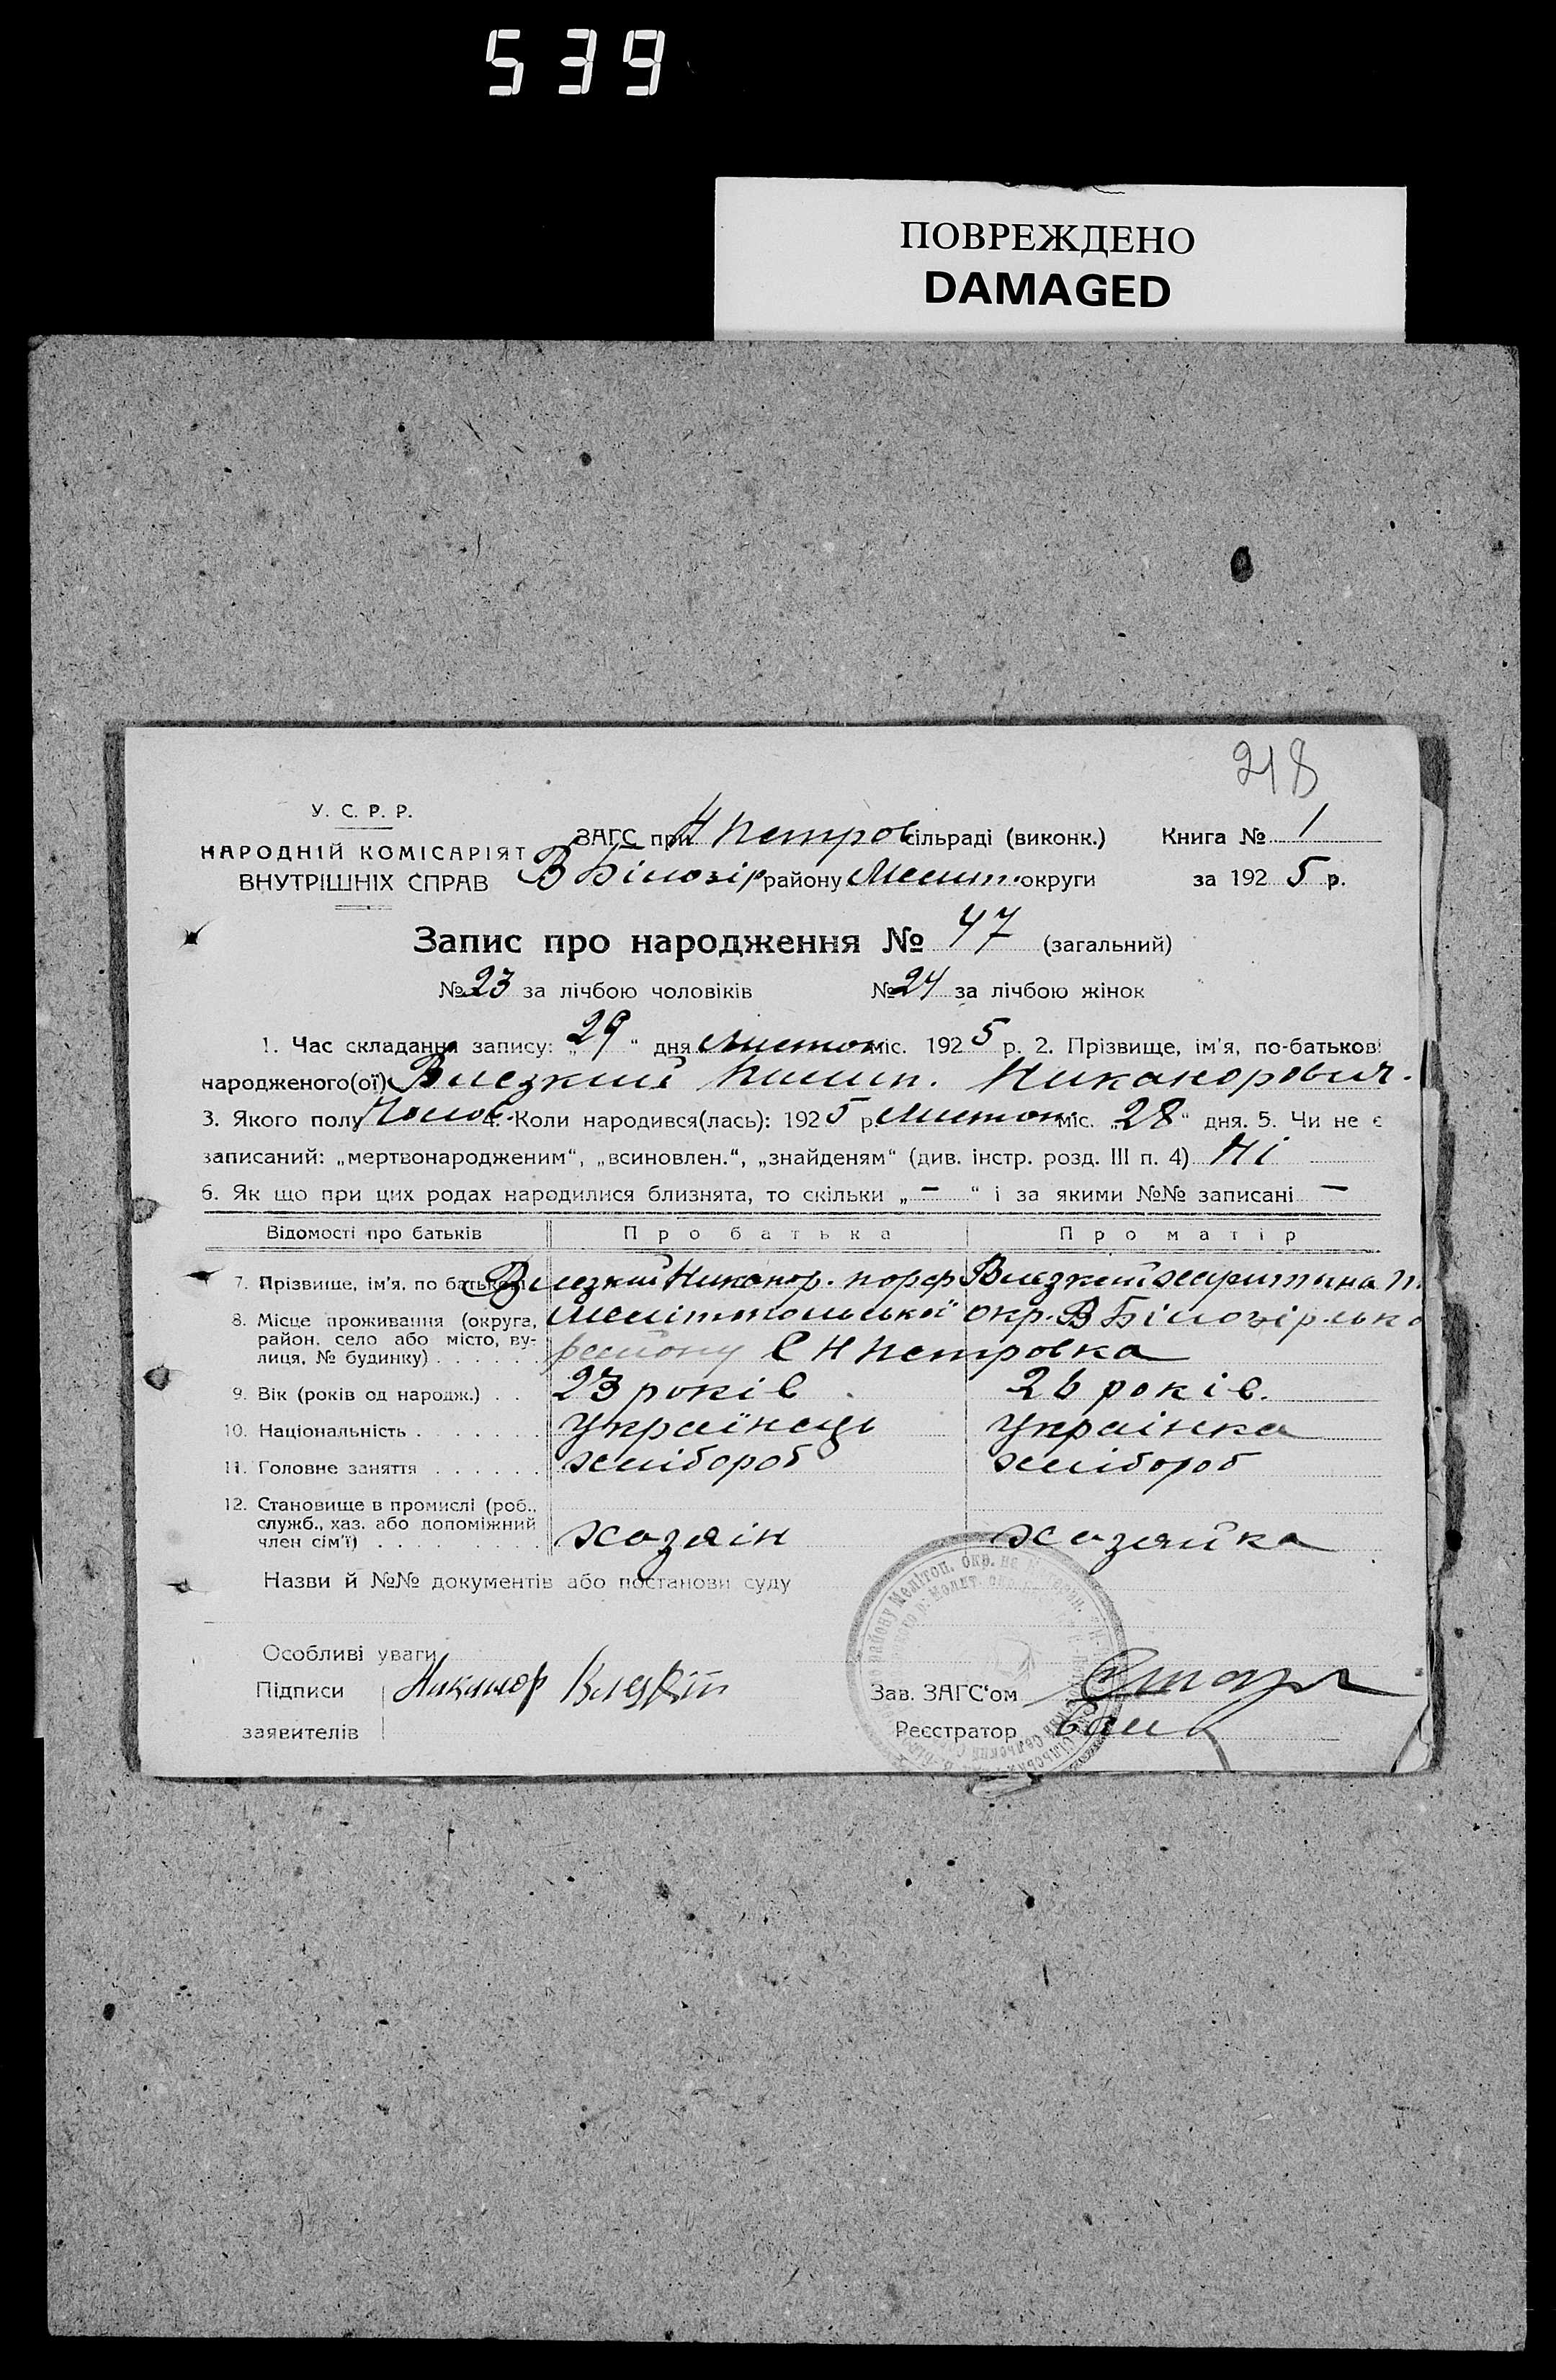 539
ПОВРЕЖДЕНО
DAMAGED
218
У. С. Р. Р.
НАРОДНІЙ КОМІСАРІЯТ
ВНУТРІШНІХ СПРАВ
ЗАГС при Н Петров сільраді (виконк.) Книга № 1
В Білозір району Меліт. округи за 1925 р.
Запис про народження № 47 (загальний)
№ 23 за лічбою чоловіків № 24 за лічбою жінок
1. Час складання запису: „29“ дня Листоп міс. 1925 р. 2. Прізвище, ім'я, по-батькові
народженого(ої) Влезкий Пилип. Никанорович.
3. Якого полу Чолов. 4. Коли народився(лась): 1925 р. Листоп міс. „28“ дня. 5. Чи не є
записаний: „мертвонародженим“, „всиновлен.“, „знайденям“ (див. інстр. розд. III п. 4) Ні
6. Як що при цих родах народилися близнята, то скільки „ – “ і за якими №№ записані –
Відомості про батьків Про батька Про матір
7. Прізвище, ім'я, по батькові Влезкий Никанор. порф Влезкий Харитина П.
8. Місце проживання (округа, Мелітопольської окр. В Білозірсько
район, село або місто, ву-
лиця, № будинку) . . . . . району С Н Петровка
9. Вік (років од народж.) . . 23 років 26 років.
10. Національність . . . . . . . Українець Украінка
11. Головне заняття . . . . . . хлібороб хлібороб
12. Становище в промислі (роб.,
служб., хаз. або допоміжний
член сім'ї) . . . . . . . . . хозяін хозяйка
Назви й №№ документів або постанови суду
Особливі уваги
Підписи Никанор Влезкій
заявителів
Зав. ЗАГС'ом
Реєстратор